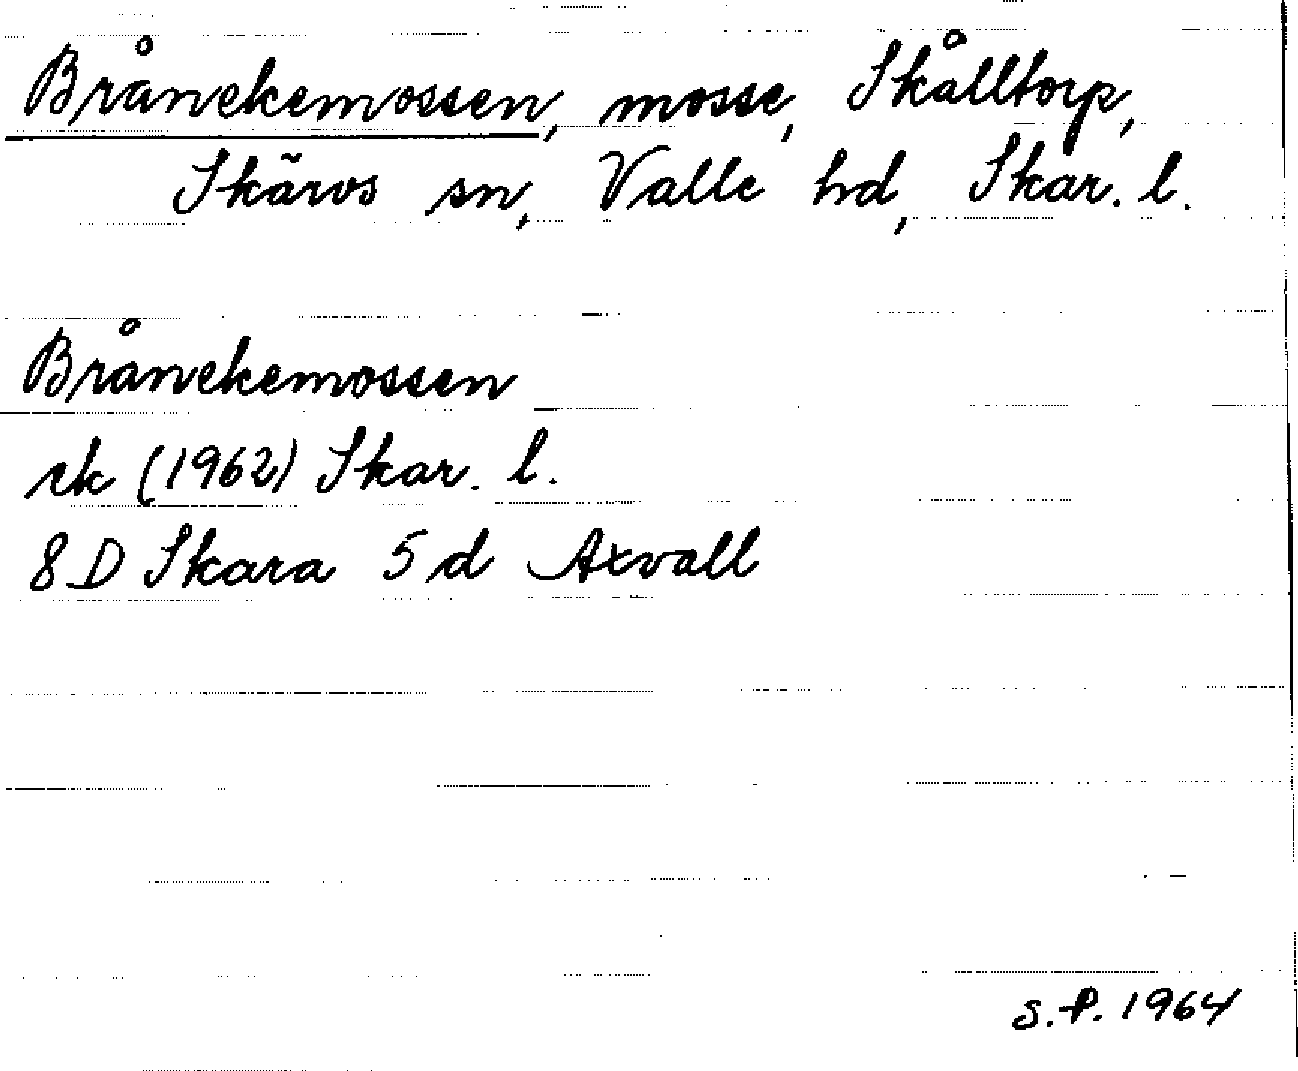 Brånekemossen, mosse, Skålltorp,
Skärvs sn, Valle hd, Skar. l.
Brånekemossen
ek (1962) Skar. l.
8D Skara 5d Axvall
S.F. 1964